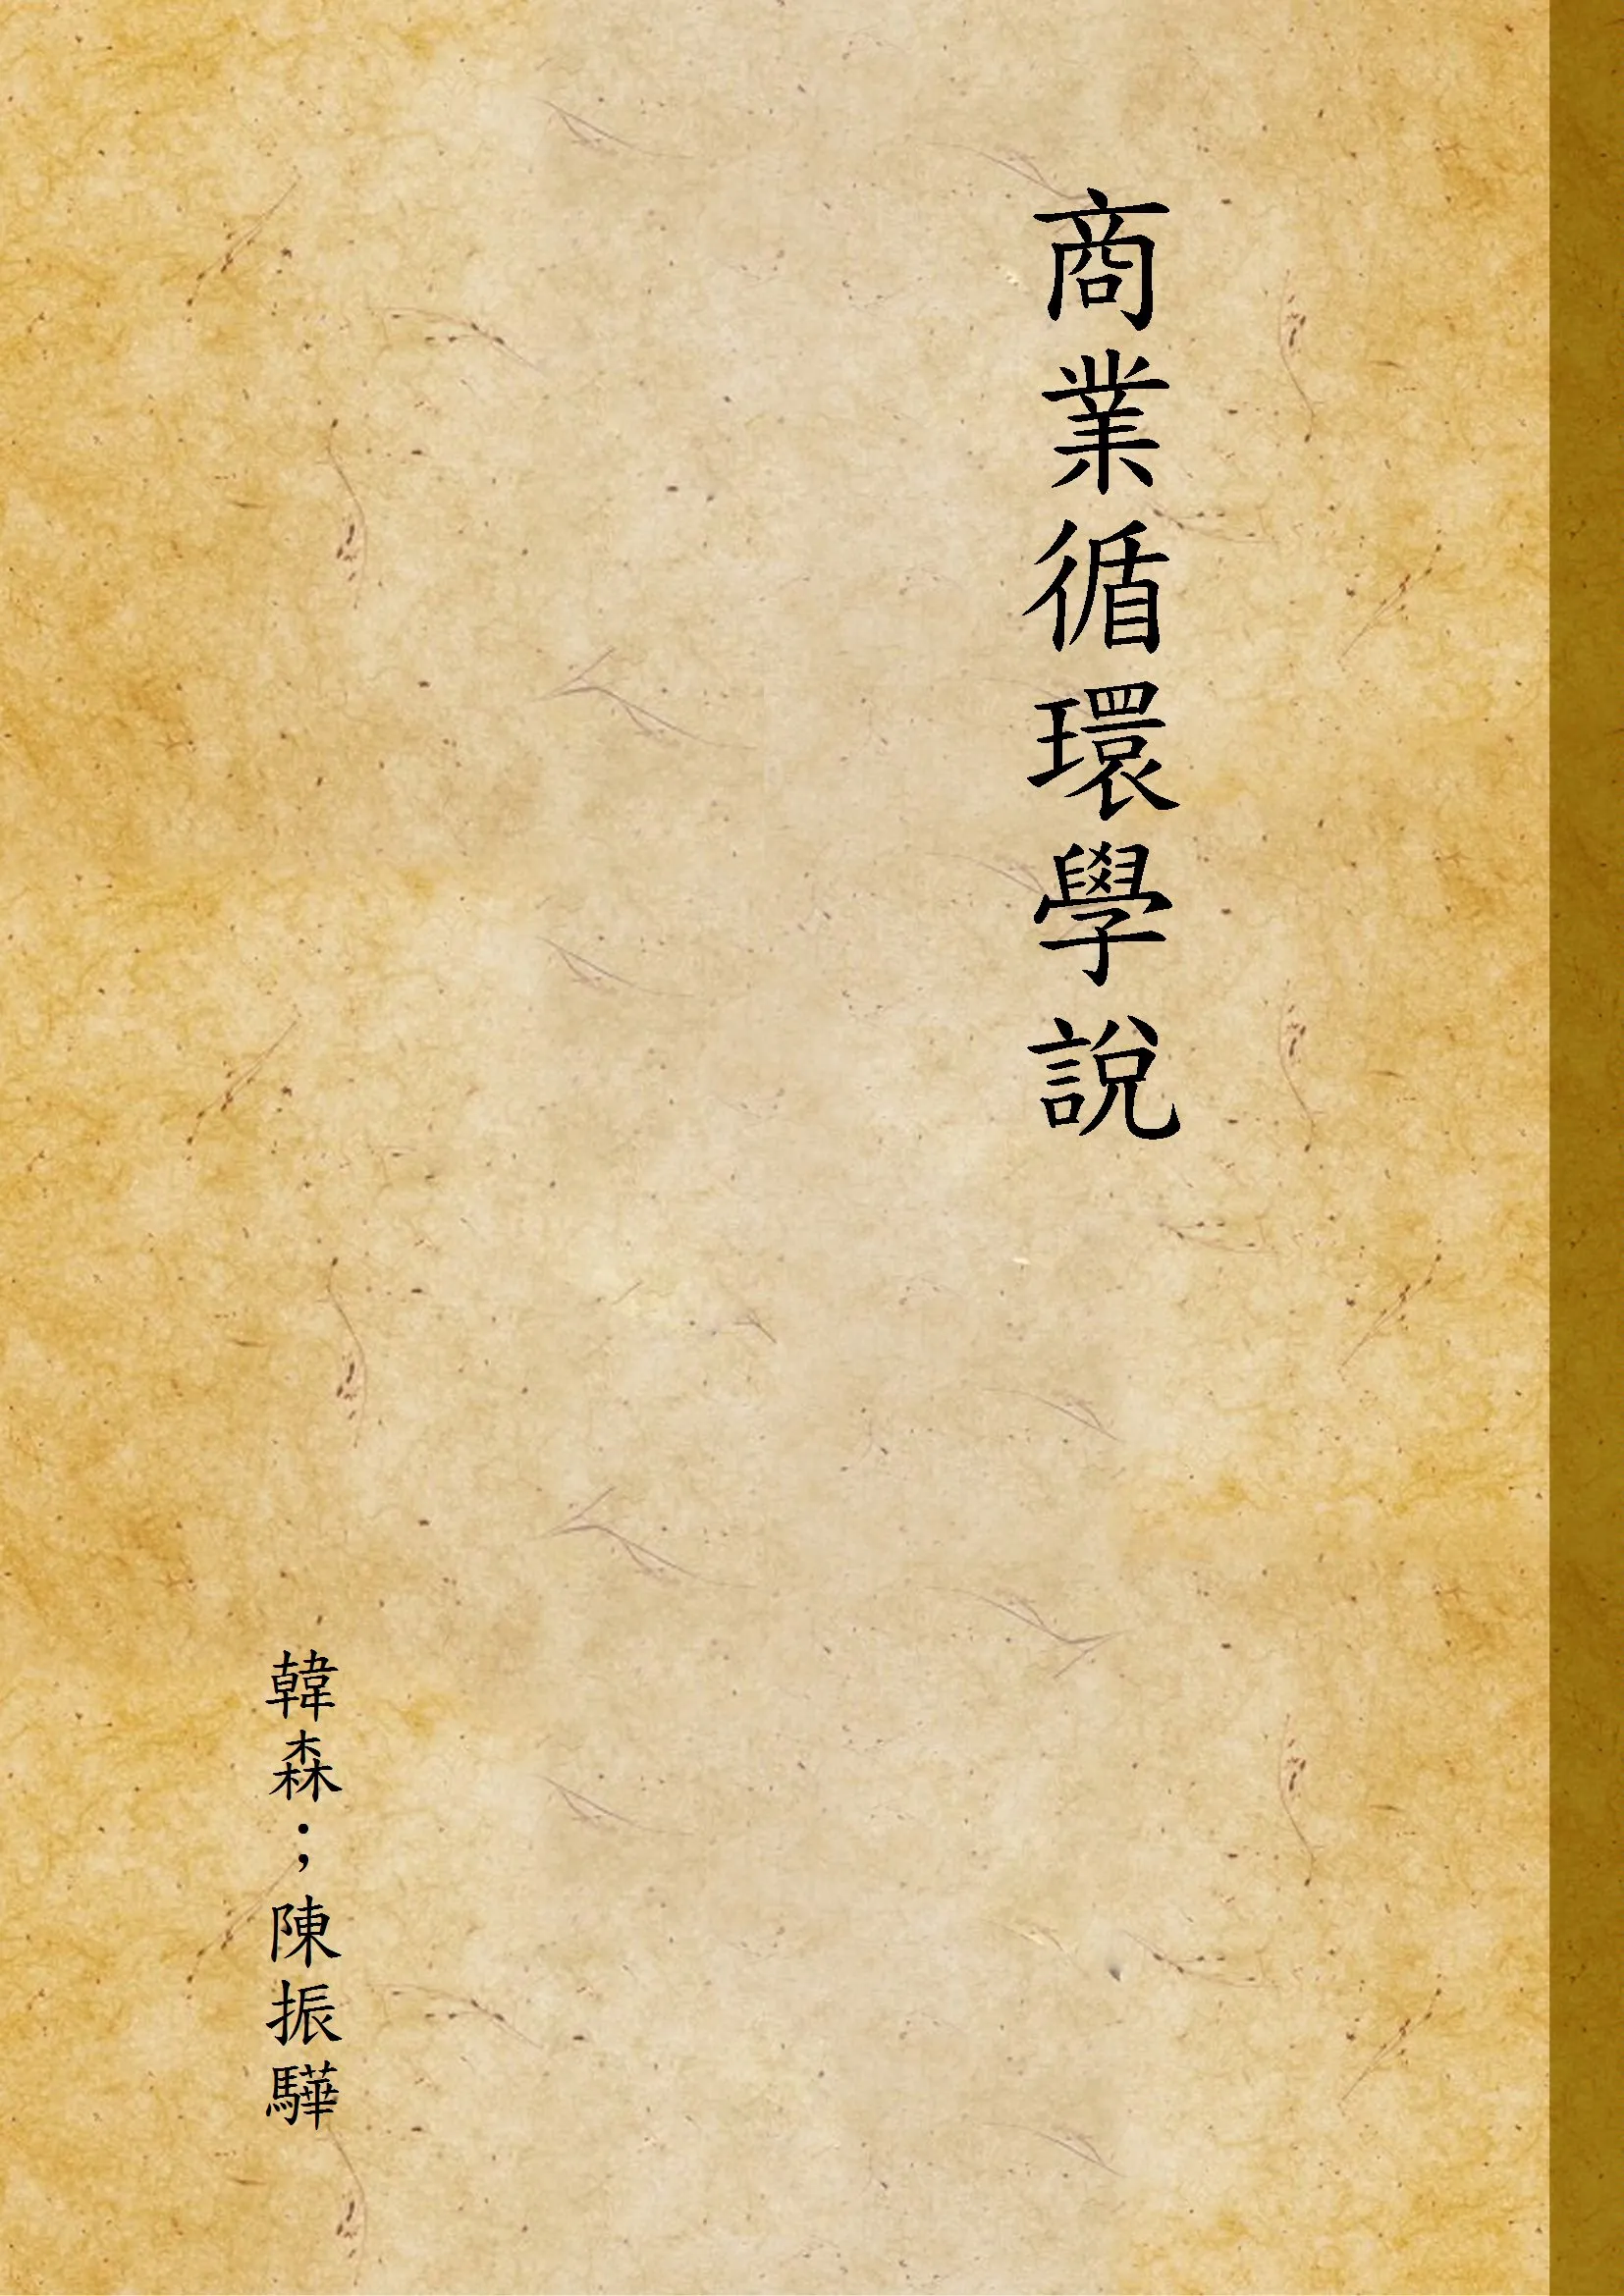 商業循環學說
韓森；陳振驊